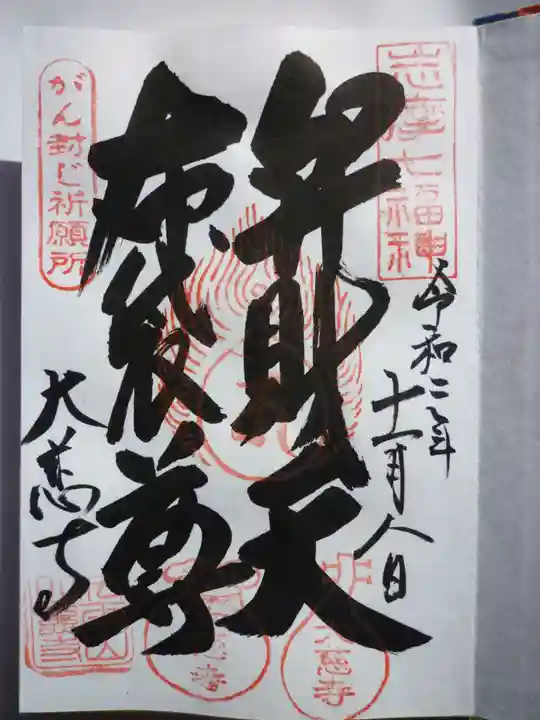 志摩七福神
令和二年
十一月八日
弁財天
布袋尊
がん封じ祈願所
大慈寺